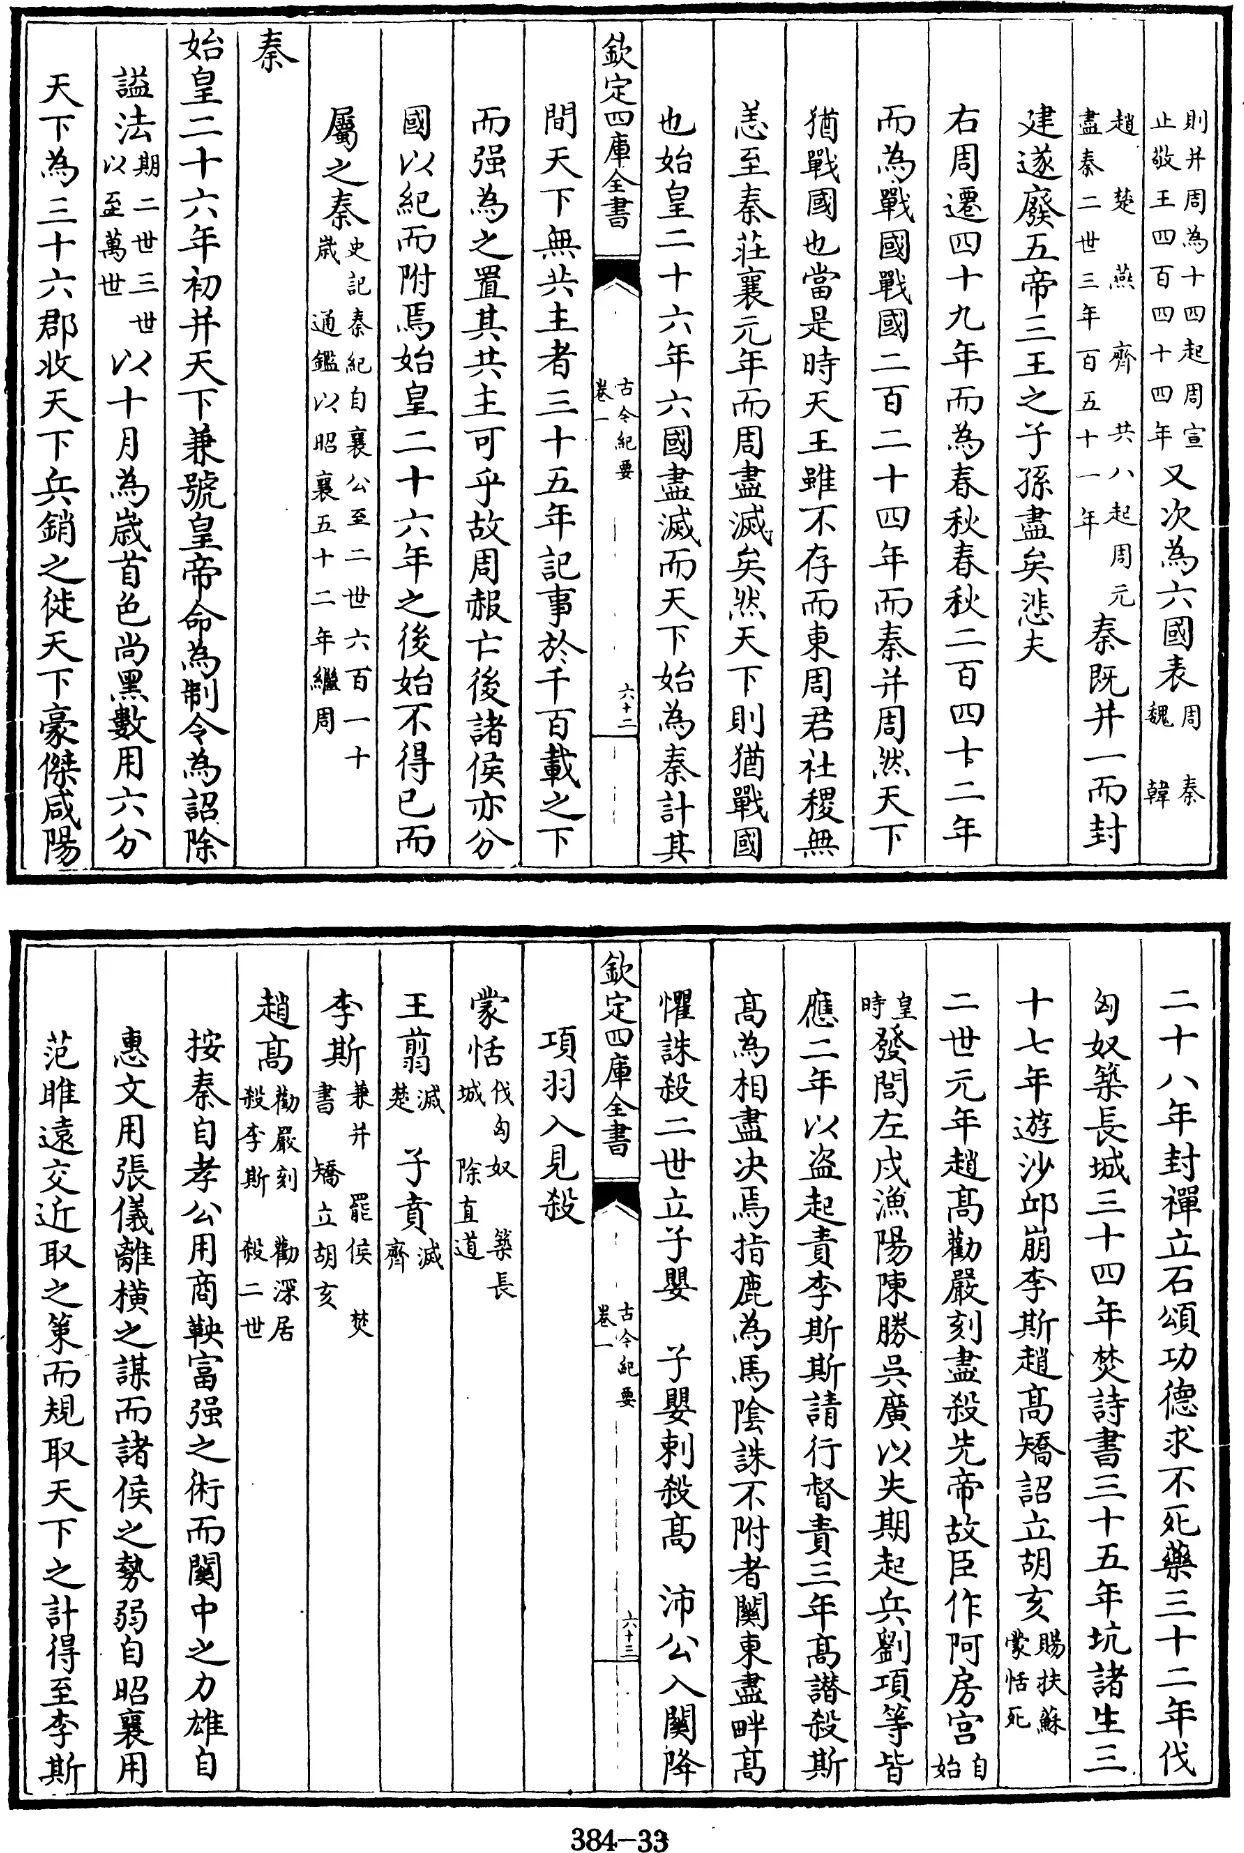 則并周為十四起周宣
止敬王四百四十四年又次為六國表周　秦
魏　韓
趙　楚　燕　齊　共八起周元
盡秦二世三年百五十一年　秦既并一而封
建遂廢五帝三王之子孫盡矣悲夫
右周遷四十九年而為春秋春秋二百四十二年
而為戰國戰國二百二十四年而秦并周然天下
猶戰國也當是時天王雖不存而東周君社稷無
恙至秦莊襄元年而周盡滅矣然天下則猶戰國
也始皇二十六年六國盡滅而天下始為秦計其
欽定四庫全書
古今紀要
卷一
六十二
間天下無共主者三十五年記事於千百載之下
而强為之置其共主可乎故周赧亡後諸侯亦分
國以紀而附焉始皇二十六年之後始不得已而
屬之秦史記秦紀自襄公至二世六百一十
歲　通鑑以昭襄五十二年繼周
秦
始皇二十六年初并天下兼號皇帝命為制令為詔除
諡法期二世三世
以至萬世以十月為歲首色尚黑數用六分
天下為三十六郡收天下兵銷之徙天下豪傑咸陽
二十八年封禪立石頌功德求不死藥三十二年伐
匈奴築長城三十四年焚詩書三十五年坑諸生三
十七年遊沙邱崩李斯趙高矯詔立胡亥賜扶蘇
蒙恬死
二世元年趙高勸嚴刻盡殺先帝故臣作阿房宮自
始
皇
時發閭左戍漁陽陳勝吳廣以失期起兵劉項等皆
應二年以盜起責李斯斯請行督責三年高譖殺斯
高為相盡决焉指鹿為馬陰誅不附者關東盡畔高
懼誅殺二世立子嬰　子嬰刺殺高　沛公入關降
欽定四庫全書
古今紀要
卷一
六十三
項羽入見殺
蒙恬伐匈奴　築長
城　除直道
王翦滅
楚　子賁滅
齊
李斯兼并　罷侯　焚
書　矯立胡亥
趙高勸嚴刻　勸深居
殺李斯　殺二世
按秦自孝公用商鞅富强之術而關中之力雄自
惠文用張儀離橫之謀而諸侯之勢弱自昭襄用
范雎遠交近取之策而規取天下之計得至李斯
384-33